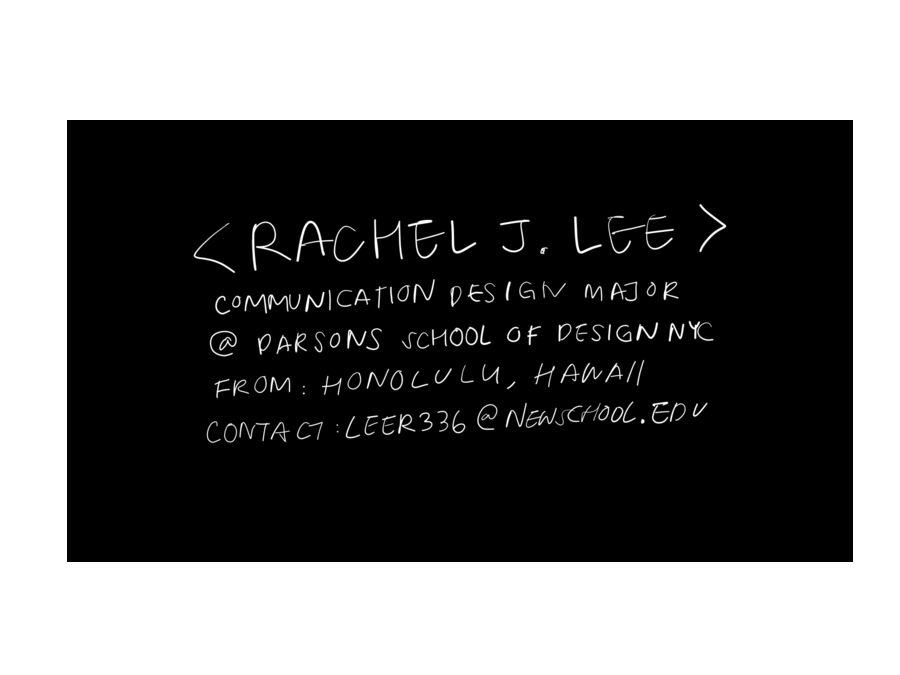 <RACHEL J. LEE>
COMMUNICATION DESIGN MAJOR
@ PARSONS SCHOOL OF DESIGN NYC
FROM: HONOLULU, HAWAII
CONTACT: LEER336@NEWSCHOOL.EDU